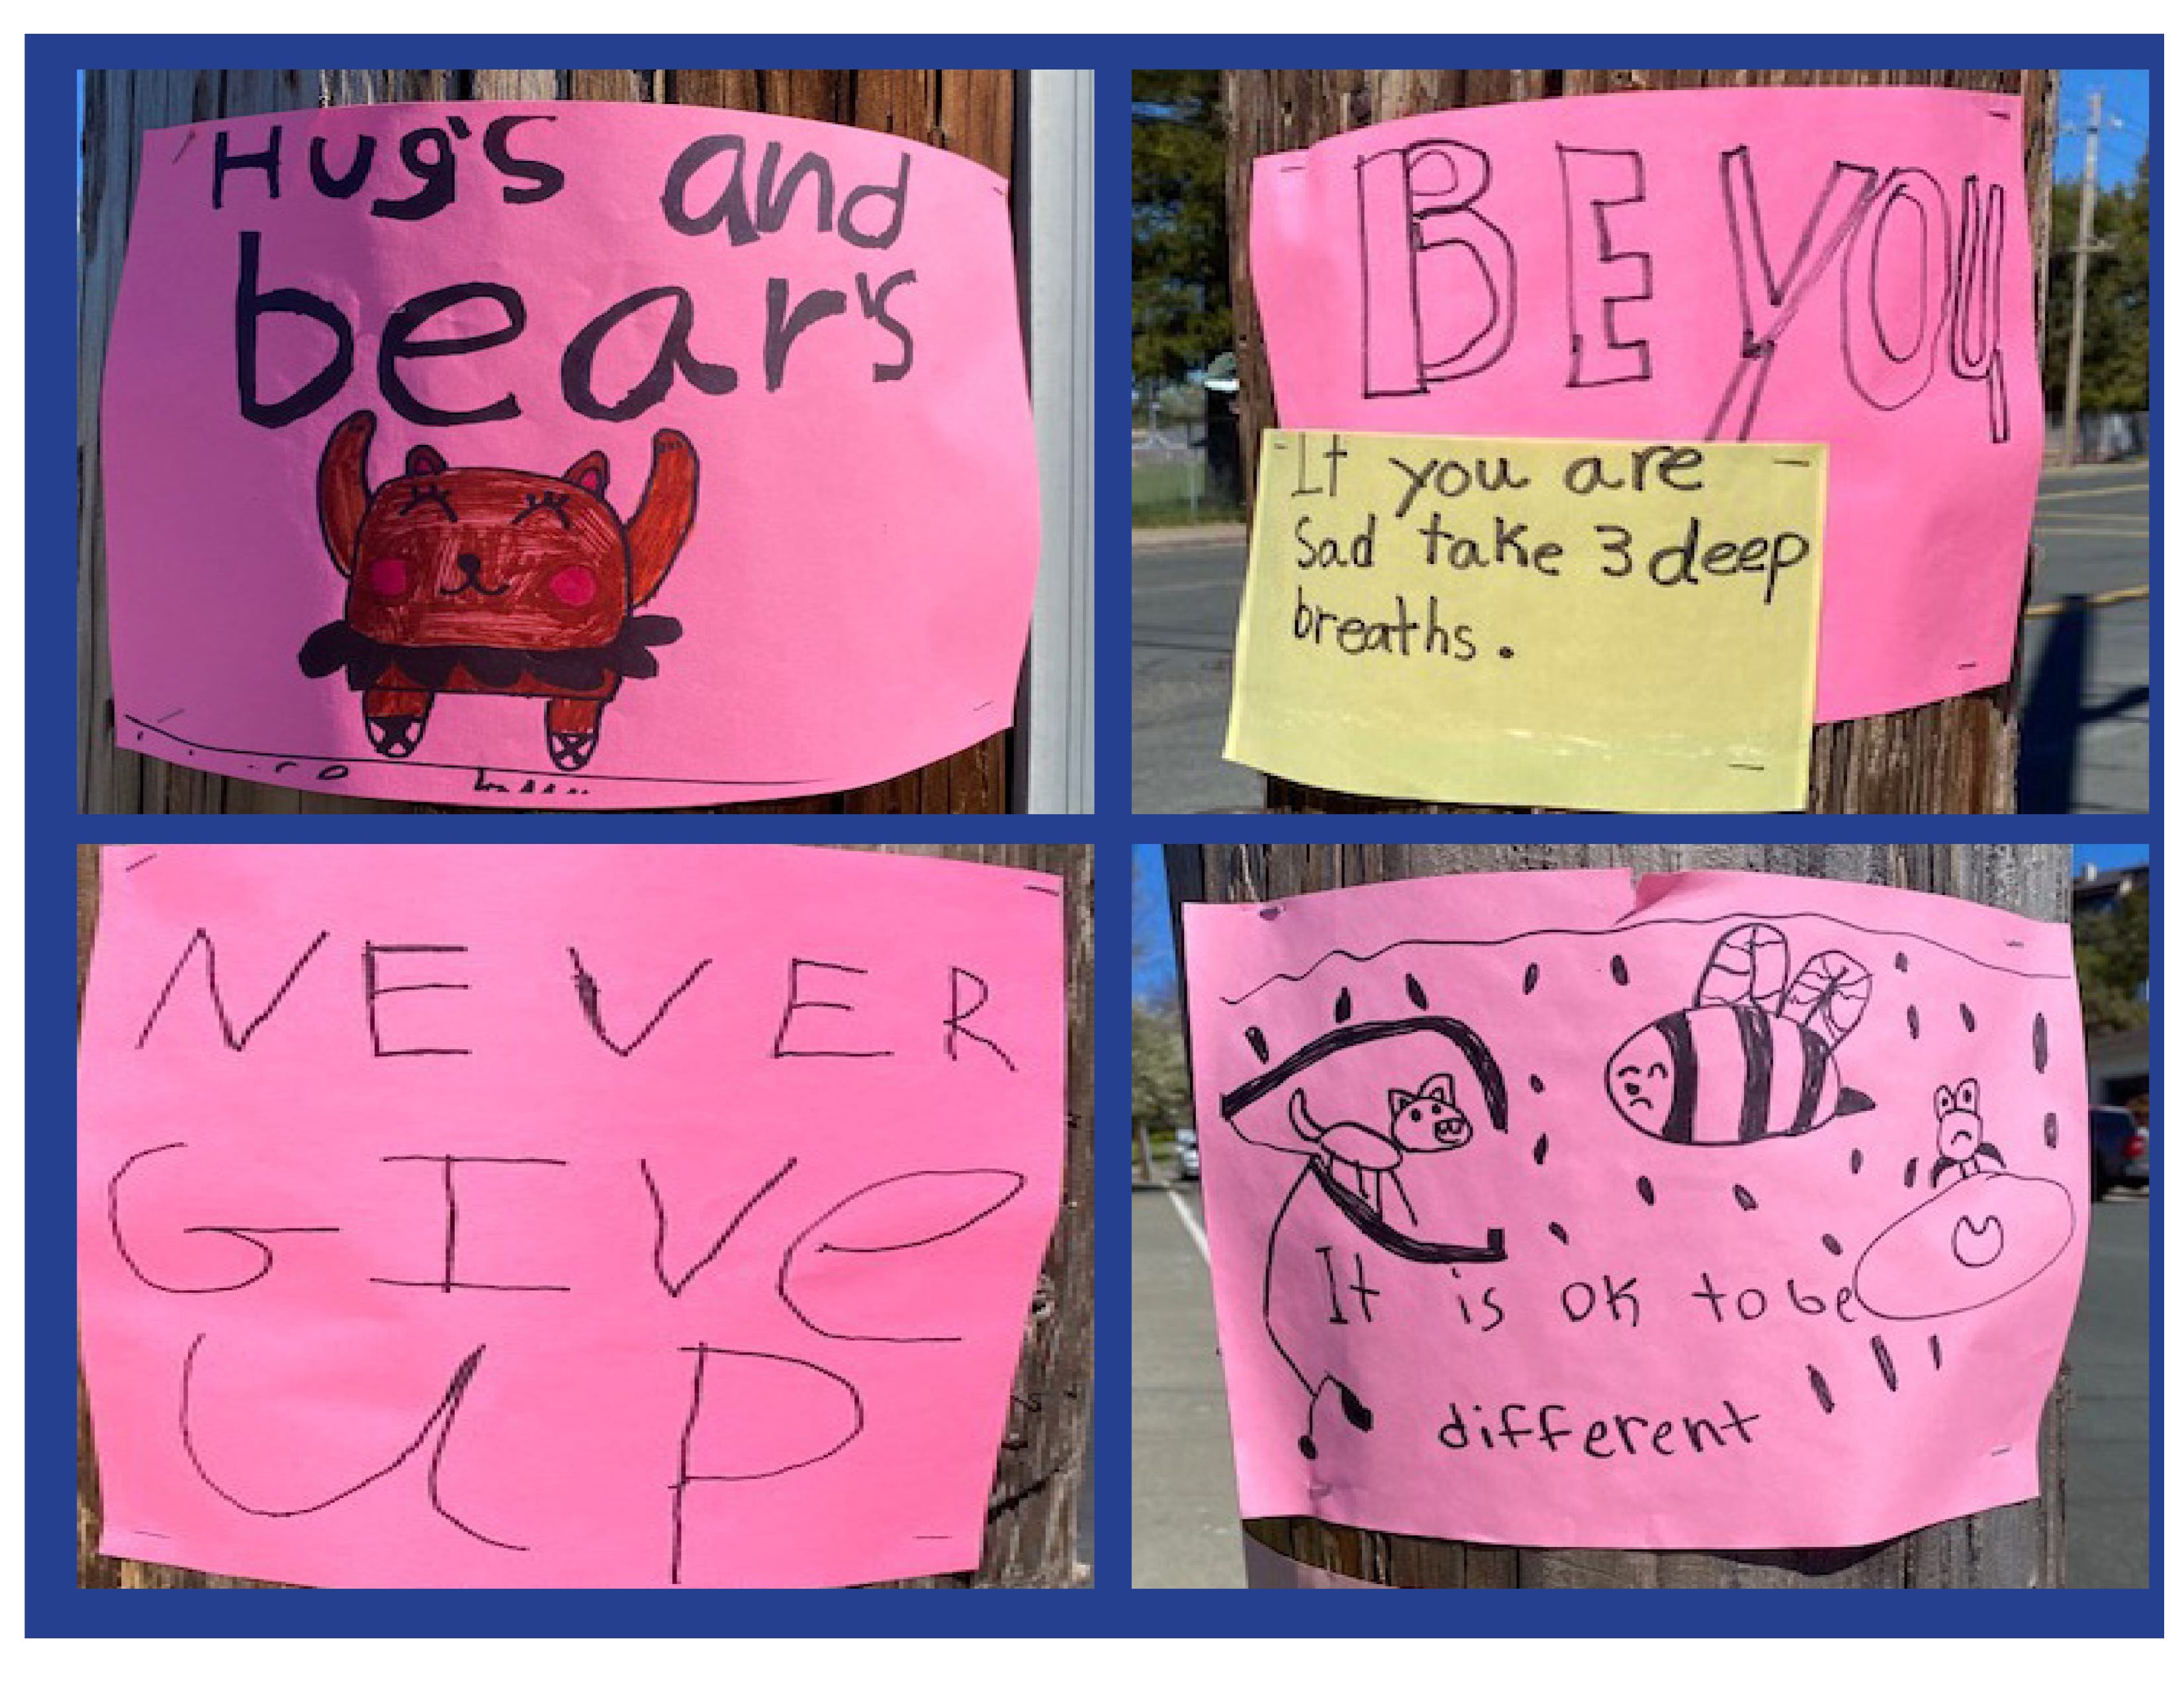 Hug's and
bear's
BE YOU
If you are
Sad take 3 deep
breaths.
NEVER
GIVe
UP
It is OK to be
different